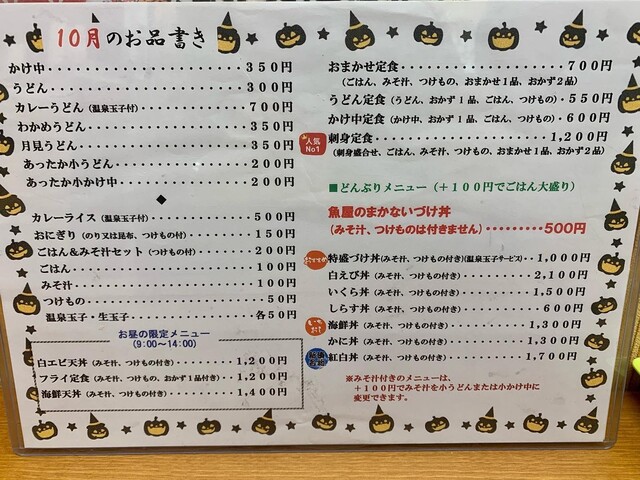 10月のお品書き
かけ中・・・・・・・・・・・・・・350円
うどん・・・・・・・・・・・・・・300円
カレーうどん(温泉玉子付)・・・・・・・700円
わかめうどん・・・・・・・・・・・350円
月見うどん・・・・・・・・・・・・350円
あったか小うどん・・・・・・・・・200円
あったか小かけ中・・・・・・・・・200円
◆
カレーライス(温泉玉子付)・・・・・・・500円
おにぎり(のり又は昆布、つけもの付)・・・・150円
ごはん&みそ汁セット(つけもの付)・・・200円
ごはん・・・・・・・・・・・・・・100円
みそ汁・・・・・・・・・・・・・・100円
つけもの・・・・・・・・・・・・・50円
温泉玉子・生玉子・・・・・・・・・各50円
お昼の限定メニュー
(9:00~14:00)
白エビ天丼(みそ汁、つけもの付き)・・・・・・・1,200円
フライ定食(みそ汁、つけもの、おかず1品付き)・・1,200円
海鮮天丼(みそ汁、つけもの付き)・・・・・・・・1,400円
おまかせ定食・・・・・・・・・・・700円
(ごはん、みそ汁、つけもの、おまかせ1品、おかず2品)
うどん定食(うどん、おかず1品、ごはん、つけもの)・550円
かけ中定食(かけ中、おかず1品、ごはん、つけもの)・600円
人気No1
刺身定食・・・・・・・・・・・・・1,200円
(刺身盛合せ、ごはん、みそ汁、つけもの、おまかせ1品、おかず2品)
■どんぶりメニュー(+100円でごはん大盛り)
魚屋のまかないづけ丼
(みそ汁、つけものは付きません)・・・・・・・・・500円
おすすめ
特盛づけ丼(みそ汁、つけもの付き)(温泉玉子サービス)・・1,000円
白えび丼(みそ汁、つけもの付き)・・・・・・2,100円
いくら丼(みそ汁、つけもの付き)・・・・・・1,500円
しらす丼(みそ汁、つけもの付き)・・・・・・600円
いちおし
海鮮丼(みそ汁、つけもの付き)・・・・・・・1,300円
かに丼(みそ汁、つけもの付き)・・・・・・・1,300円
紅白丼(みそ汁、つけもの付き)・・・・・・・1,700円
※みそ汁付きのメニューは、
+100円でみそ汁を小うどんまたは小かけ中に
変更できます。